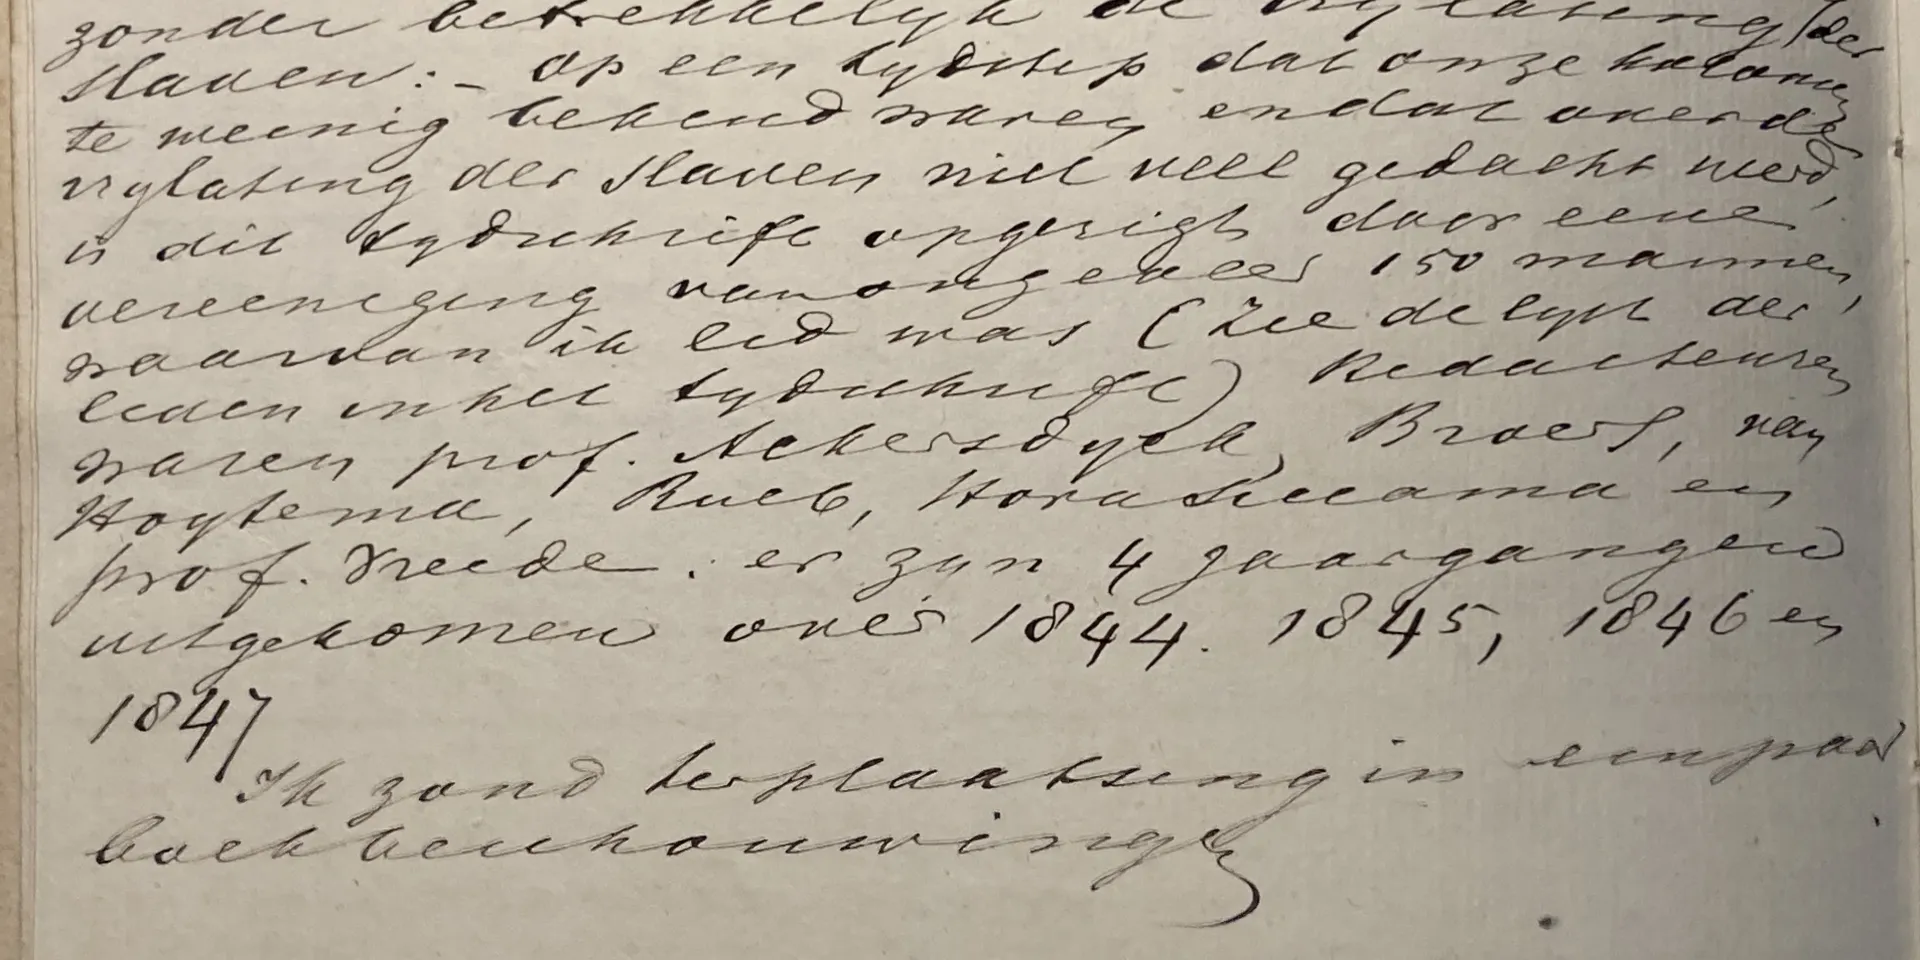 zonder betrekkelyk de vrylating der
slaven: – op een tydstip dat onze kolonien
te weinig bekend waren en dat over de
vrylating der slaven niet veel gedacht werd,
is dit tydschrift opgerigt door eene
vereeniging van ongeveer 150 mannen,
waarvan ik lid was (Zie de lyst der
leden in het tydschrift) Redacteuren
waren prof. Ackersdyck, Broers, van
Hoytema, Rueb, Hora Siccama en
prof. Vreede. er zyn 4 jaargangen
uitgekomen over 1844. 1845, 1846 en
1847
Ik zond ter plaatsing in een paar
boekbeschouwingen